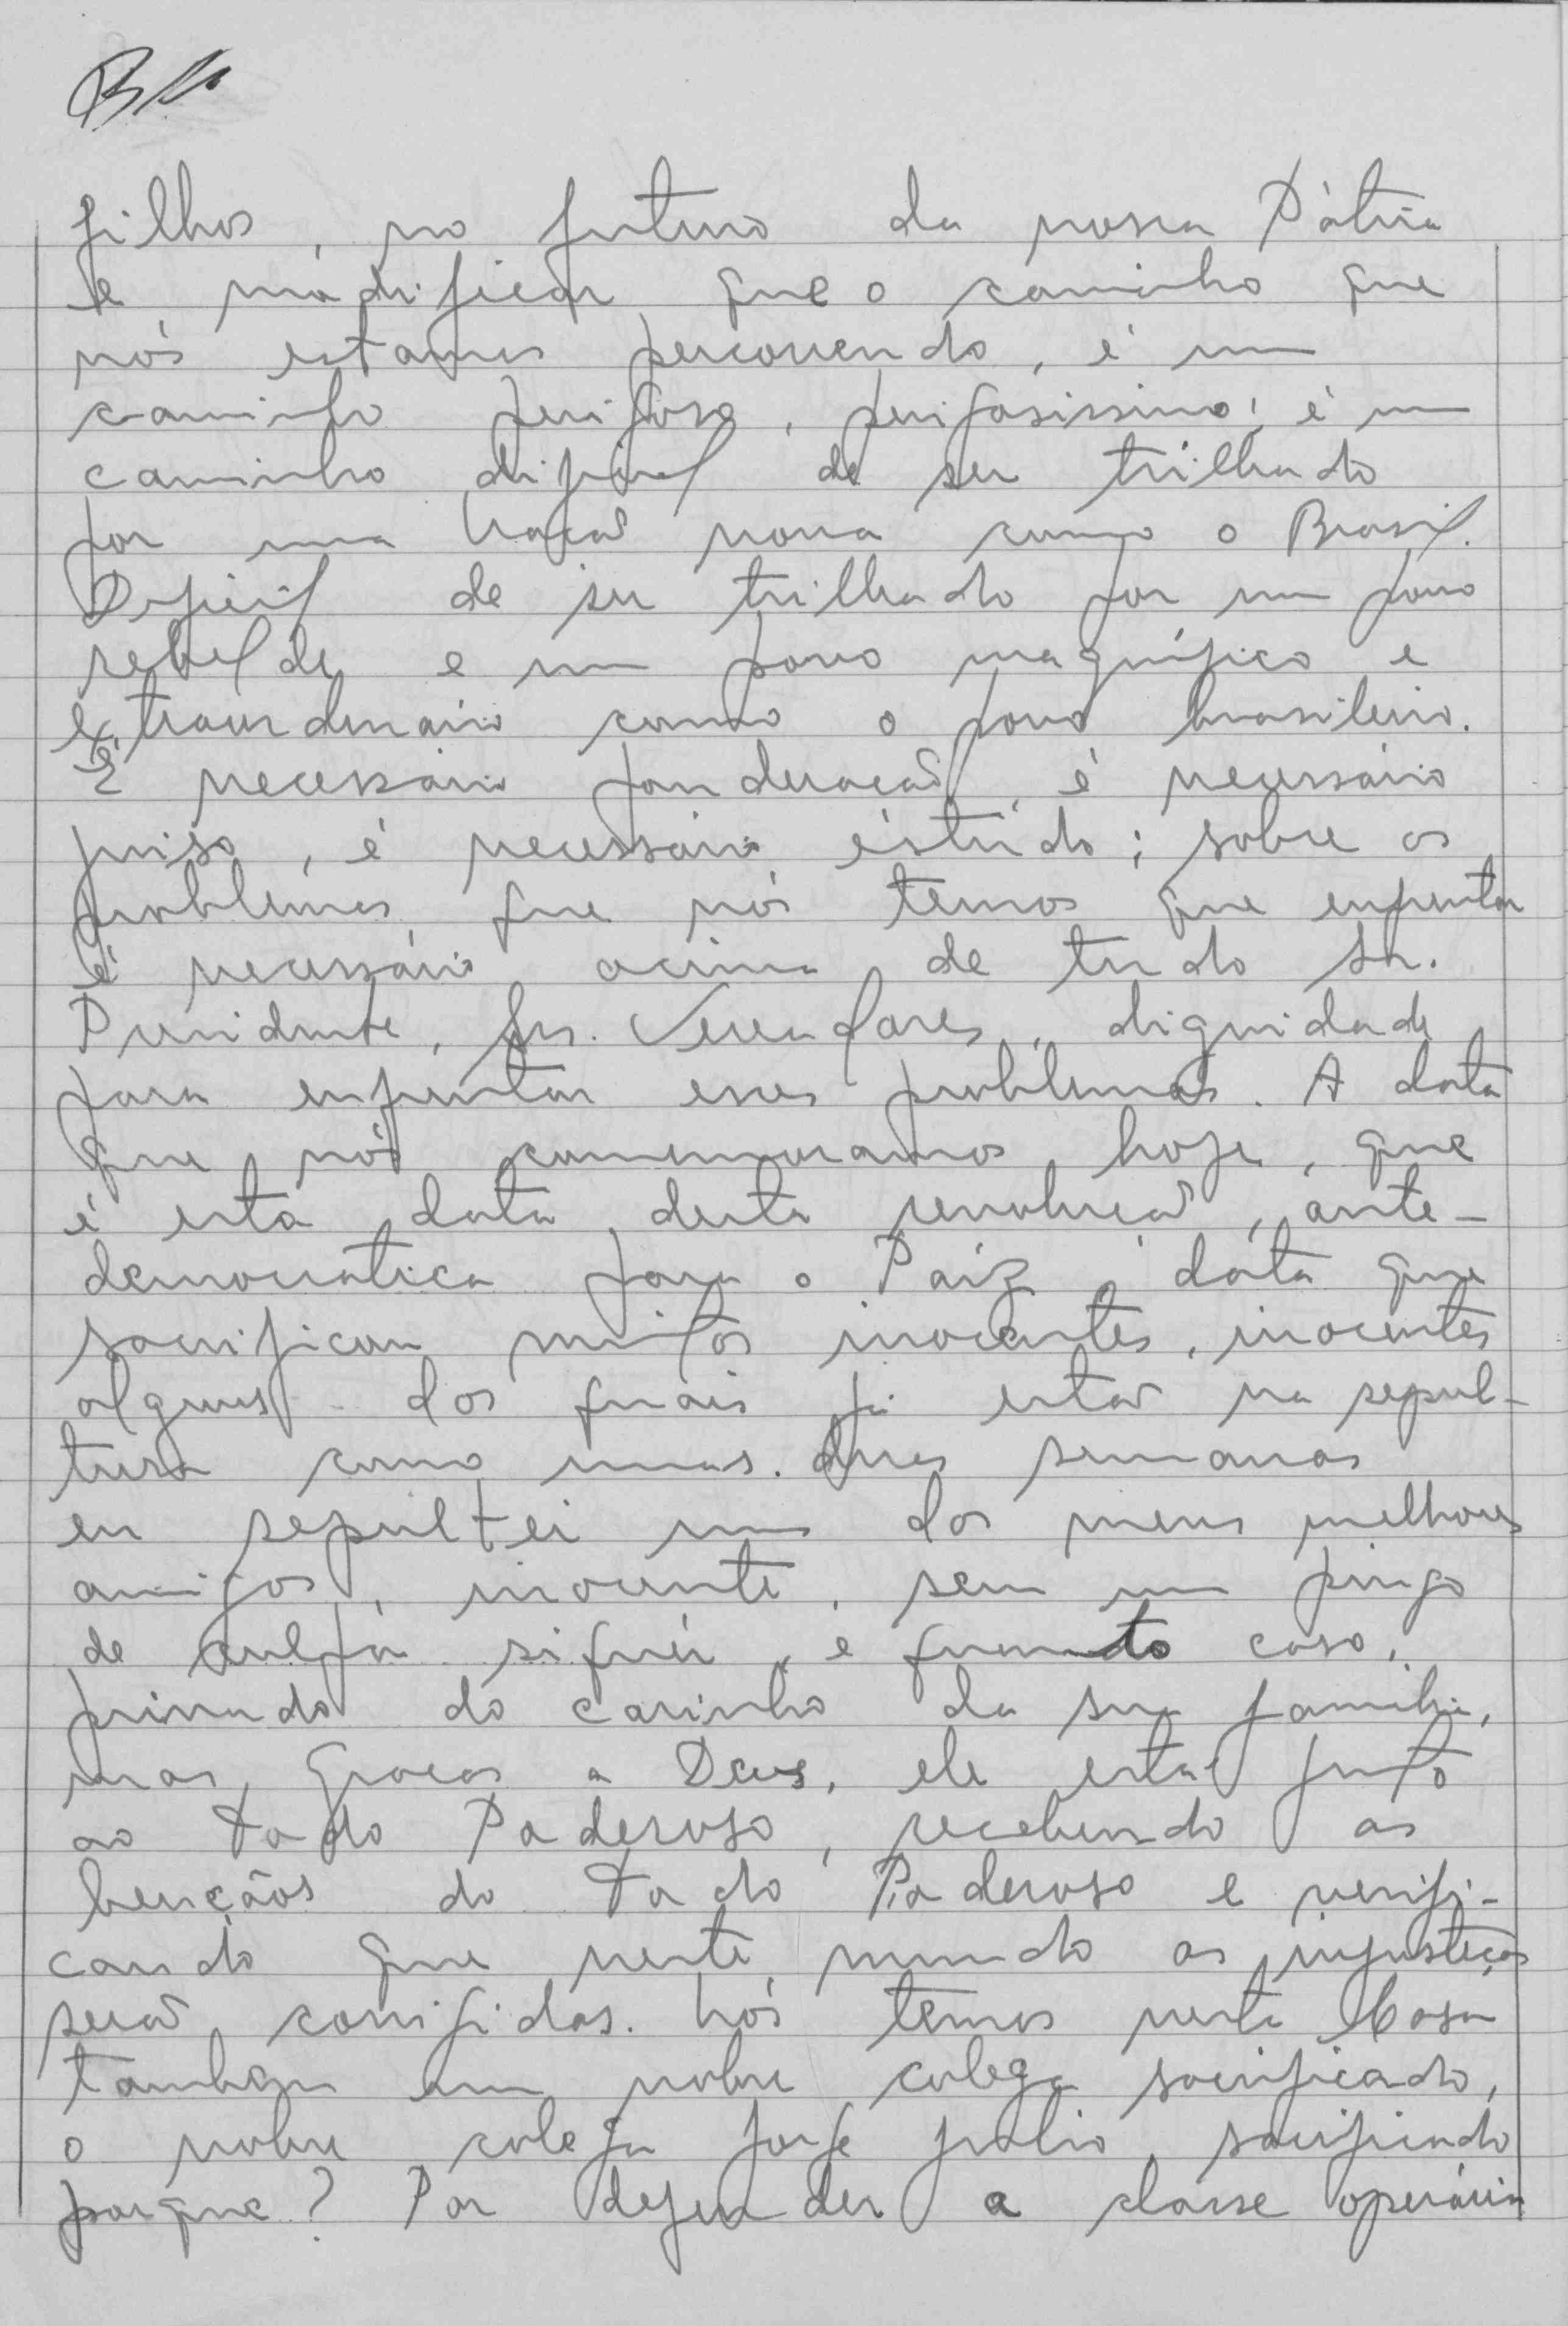 filhos, no futuro da nossa Pátria
e modificar que o caminho que
nós estamos percorrendo, é um
caminho perigoso, perigosissimo; é um
caminho dificil de ser trilhado
por uma Nação nova como o Brasil.
Dificil de ser trilhado por um povo
rebelde e um povo magnífico e
extraurdinário como o povo brasileiro.
É necessário ponderação, é necessário
juiso, é necessário estudo; sobre os
problemas que nós temos que enfrentar
é necessário acima de tudo Sr.
Presidente, Srs. Vereadores, dignidade
para enfrentar esses problemas. A data
que nós comemoramos hoje, que
é esta data desta revolução, ante-
democratica para o Paiz, data que
sacrificou muitos inocentes, inocentes
alguns dos quais já estão na sepul-
tura como umas duas semanas
eu sepultei um dos meus melhores
amigos, inocente, sem um pingo
de culpa siquer, e quando caso,
privado do carinho da sua familia,
mas, graças a Deus, ele está junto
ao Todo Poderoso, recebendo as
bençãos do Todo Poderoso e verifi-
cando que neste mundo as injustiças
serão corrigidas. Nós temos nesta Casa
tambem um nobre colega sacrificado,
o nobre colega Jorge Julio, sacrificado
porque? Por defender a classe operária